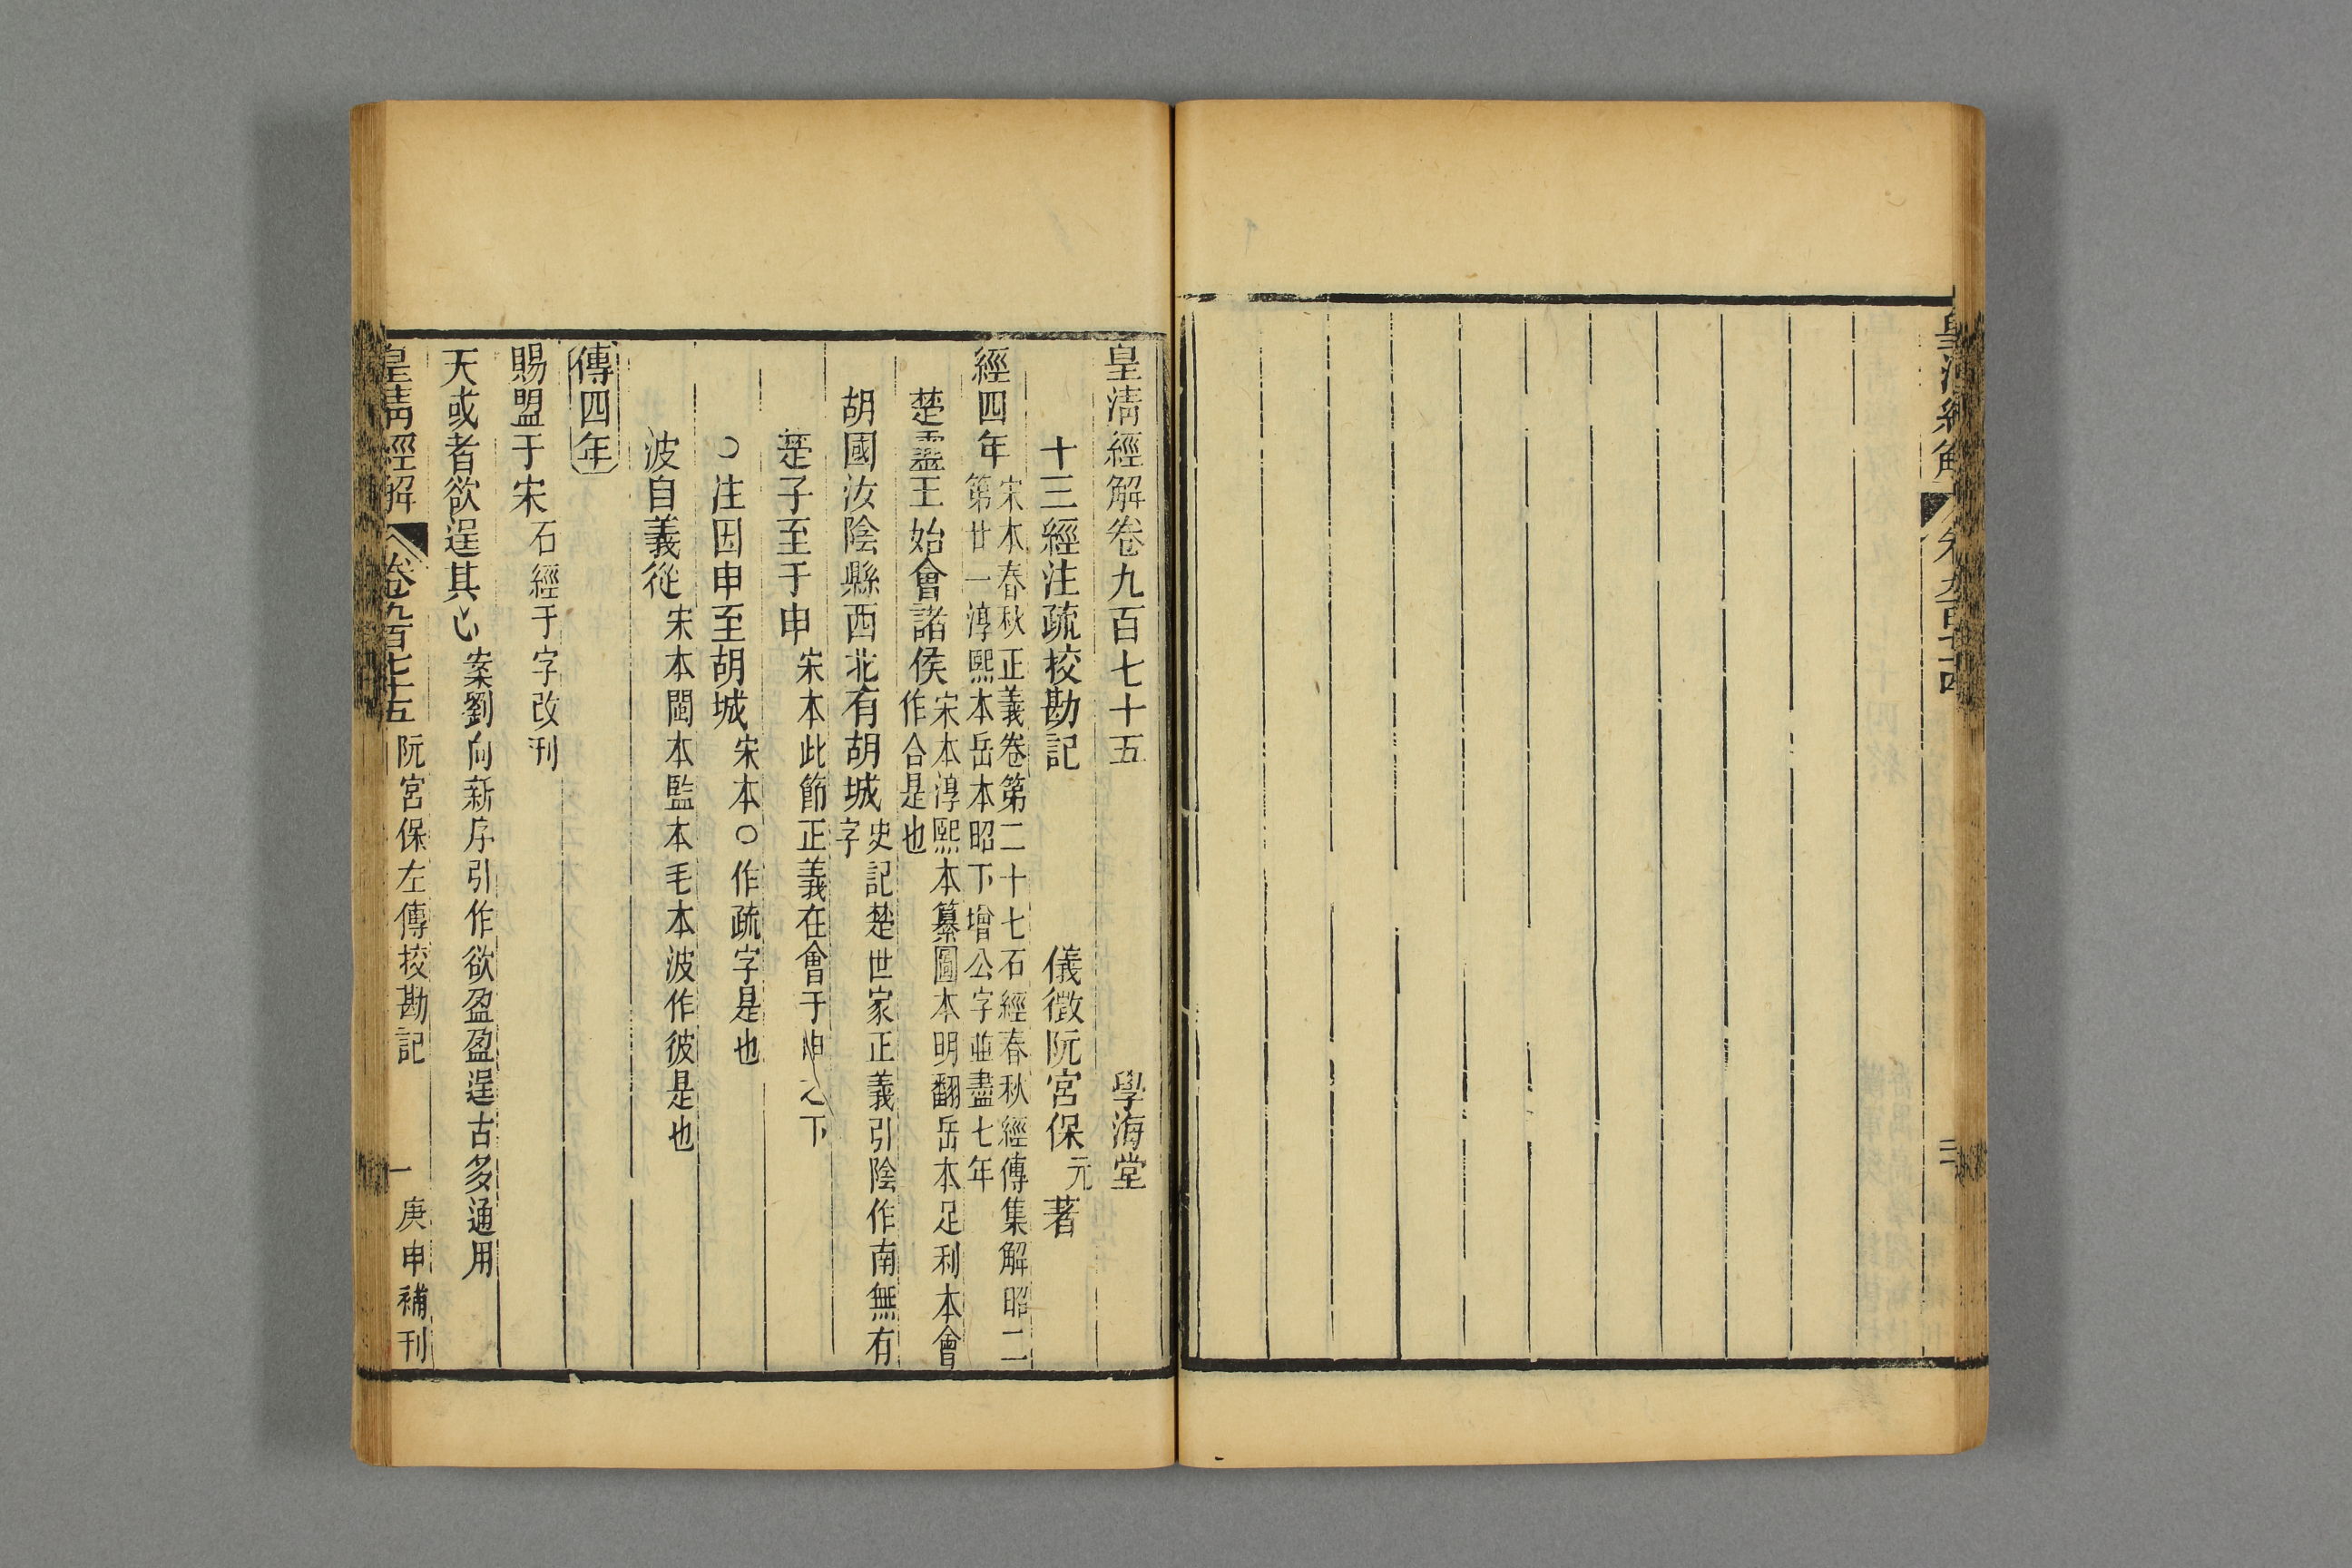 皇清經解卷九百七十五
學海堂
十三經注疏挍勘記
儀徵阮宮保元著
經四年
宋本春秋正義卷第二十七石經春秋經傳集解昭二
第廿一淳熙本岳本昭下增公字並盡七年
楚靈王始會諸侯
宋本淳熙本纂圖本明翻岳本足利本會
作合是也
胡國汝陰縣西北有胡城
史記楚世家正義引陰作南無有
字
楚子至于申
宋本此節正義在會于申之下
○注因申至胡城
宋本○作疏字是也
波自義從
宋本閩本監本毛本波作彼是也
傳四年
賜盟于宋
石經于字改刋
天或者欲逞其心
案劉向新序引作欲盈盈逞古多通用
皇清經解 卷九百七十五 阮宮保左傳挍勘記 一 庚申補刊